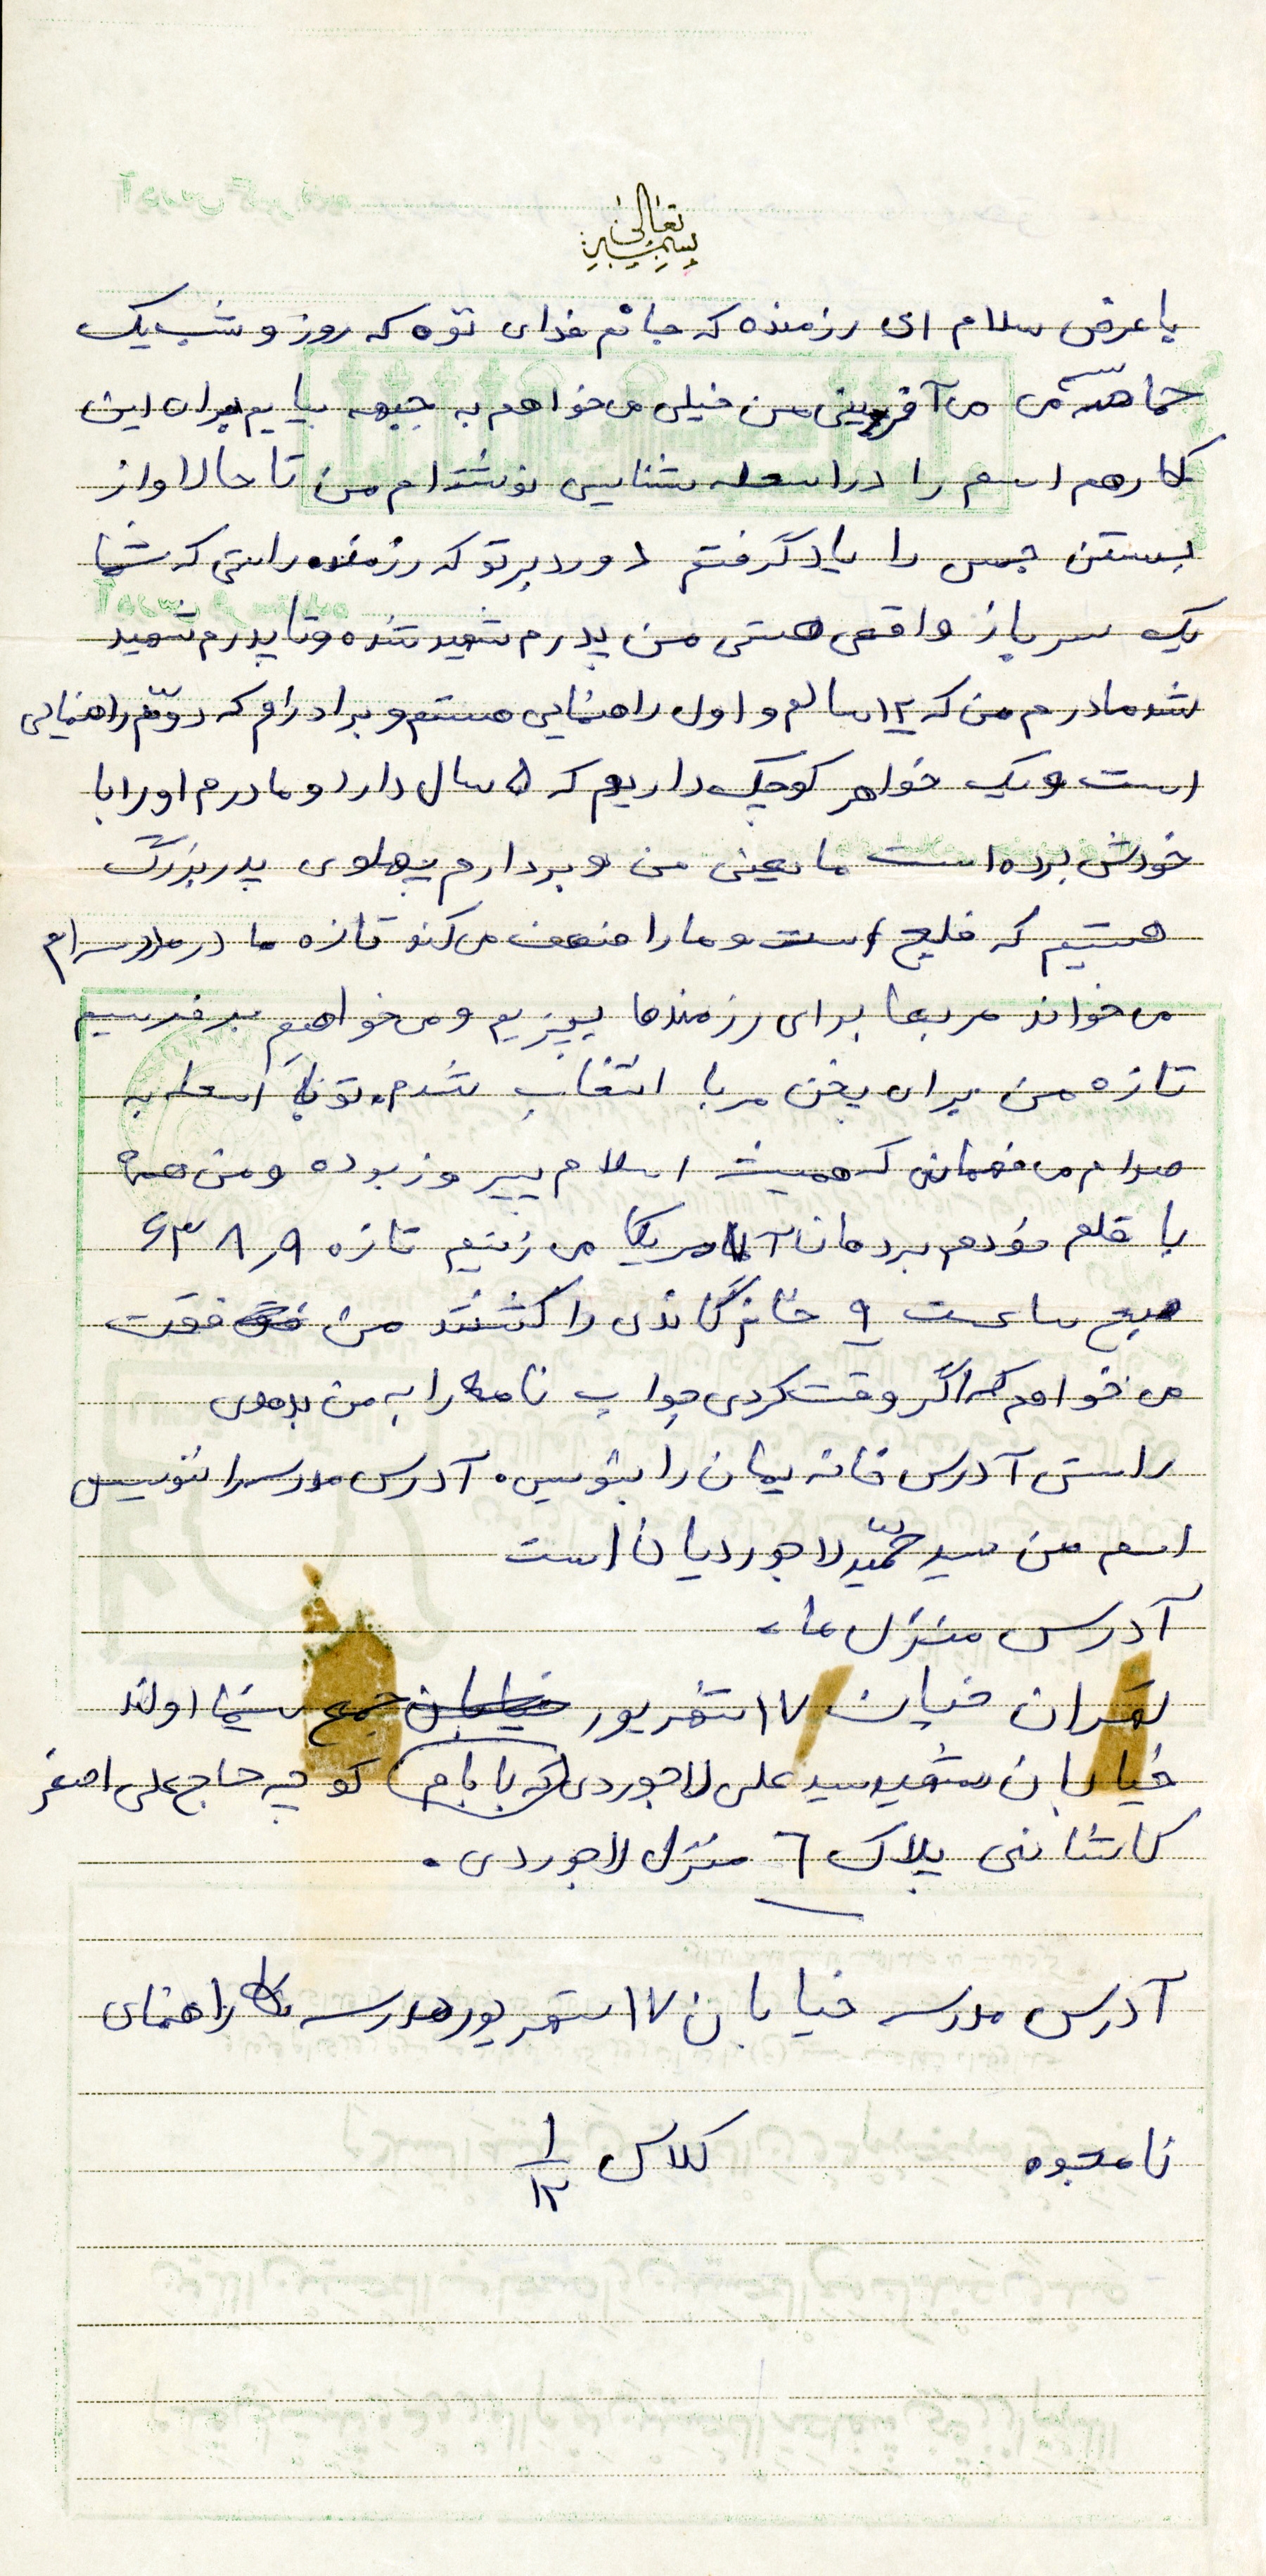 بسمه تعالی
با عرض سلام ای رزمنده که جانم فدای توه که روز و شب یک
حماسه می آفرینی من خیلی می خواهم به جبهه بیایم برای این
کار هم اسم را در اسلحه شناسی نوشتدام من تا حالا واز
بستن را یاد گرفتم درود بر تو که رزمنده راستی که شما
یک سرباز واقعی هستی من پدرم شهید شده وقتا پدرم شهید
شد مادرم من که ۱۲ سالم و اول راهنمایی هستم و برادرام که دوّم راهنمایی
است ویک خواهر کوچیک داریم که ۵ سال دارد و مادرم اورا با
خودش برده است ما یعنی من و بردارم پهلوی پدر بزرگ
هستیم که فلیج است و مارا ضعف می کند تازه ما در مدرسه ام
می خواند مربعا برای رزمندها بپزیم و می خواهیم بفرسیم
تازه من برای پخن مربا انتخاب شدم. تو با اسلحه به
صدام می فهمانی که همیشه اسلام پیروز بوده و من
با قلم خودم بر دهان آمریکا می زنیم تازه ۶۳٫۸٫۹
صبح ساعت ۹ خانم گاندی را کشتند من فقت
می خواهم که اگر وقت کردی جواب نامه را به من بدهی
راستی آدرس خانه یمان را بنویس. آدرس مدرسه را ننویس
اسم من سید حمّید لاجوردیان است
آدرس منزل ما،
تهران خیابان ۱۷ شهریور سینما اولند
خیابان شهید سید علی لاجوردی (که بابام) کوچه حاج علی اصغر
کاشانی پلاک ٦ منزل لاجوردی.
آدرس مدرسه خیابان ۱۷ شهریور مدرسه راهنمای
نامجوه کلاس ۱/۱۲